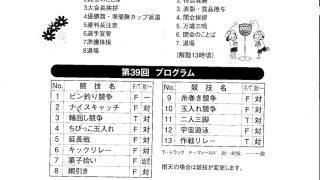 3大会長挨拶
4優勝旗・準優勝カップ返還
5審判長注意
6選手宣誓
7準備体操
8退場
3．表彰・賞品授与
4．閉会挨拶
5．万歳三唱
6．閉会のことば
7．退場
(解散13時頃)
第39回 プログラム
No. 競技名 F/T 対一
1 ビン釣り競争 F
2 ナイスキャッチ F 対
3 輪回し競争 T 対
4 ちびっこ玉入れ F 対
5 延長戦 F 対
6 キックリレー F 対
7 菓子拾い F
8 綱引き F 対
No. 競技名 F/T 対
9 糸巻き競争 F 対
10 玉入れ競争 F 対
11 二人三脚 T 対
12 宇宙遊泳 F 対
13 作戦リレー T 対
T－トラック F－フィールド 対－対抗
雨天の場合は競技が変更します。